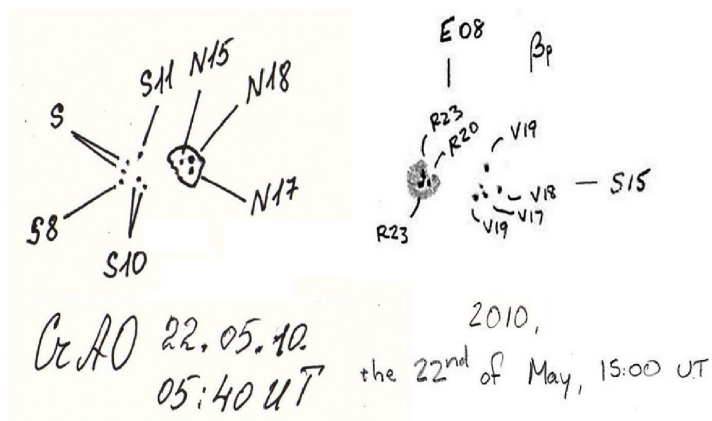 S
S11
N15
N18
N17
S8
S10
CrAO 22.05.10.
05:40 UT
E08
βp
R23
R20
V19
S15
V18
V17
V19
R23
2010,
the 22nd of May, 15:00 UT